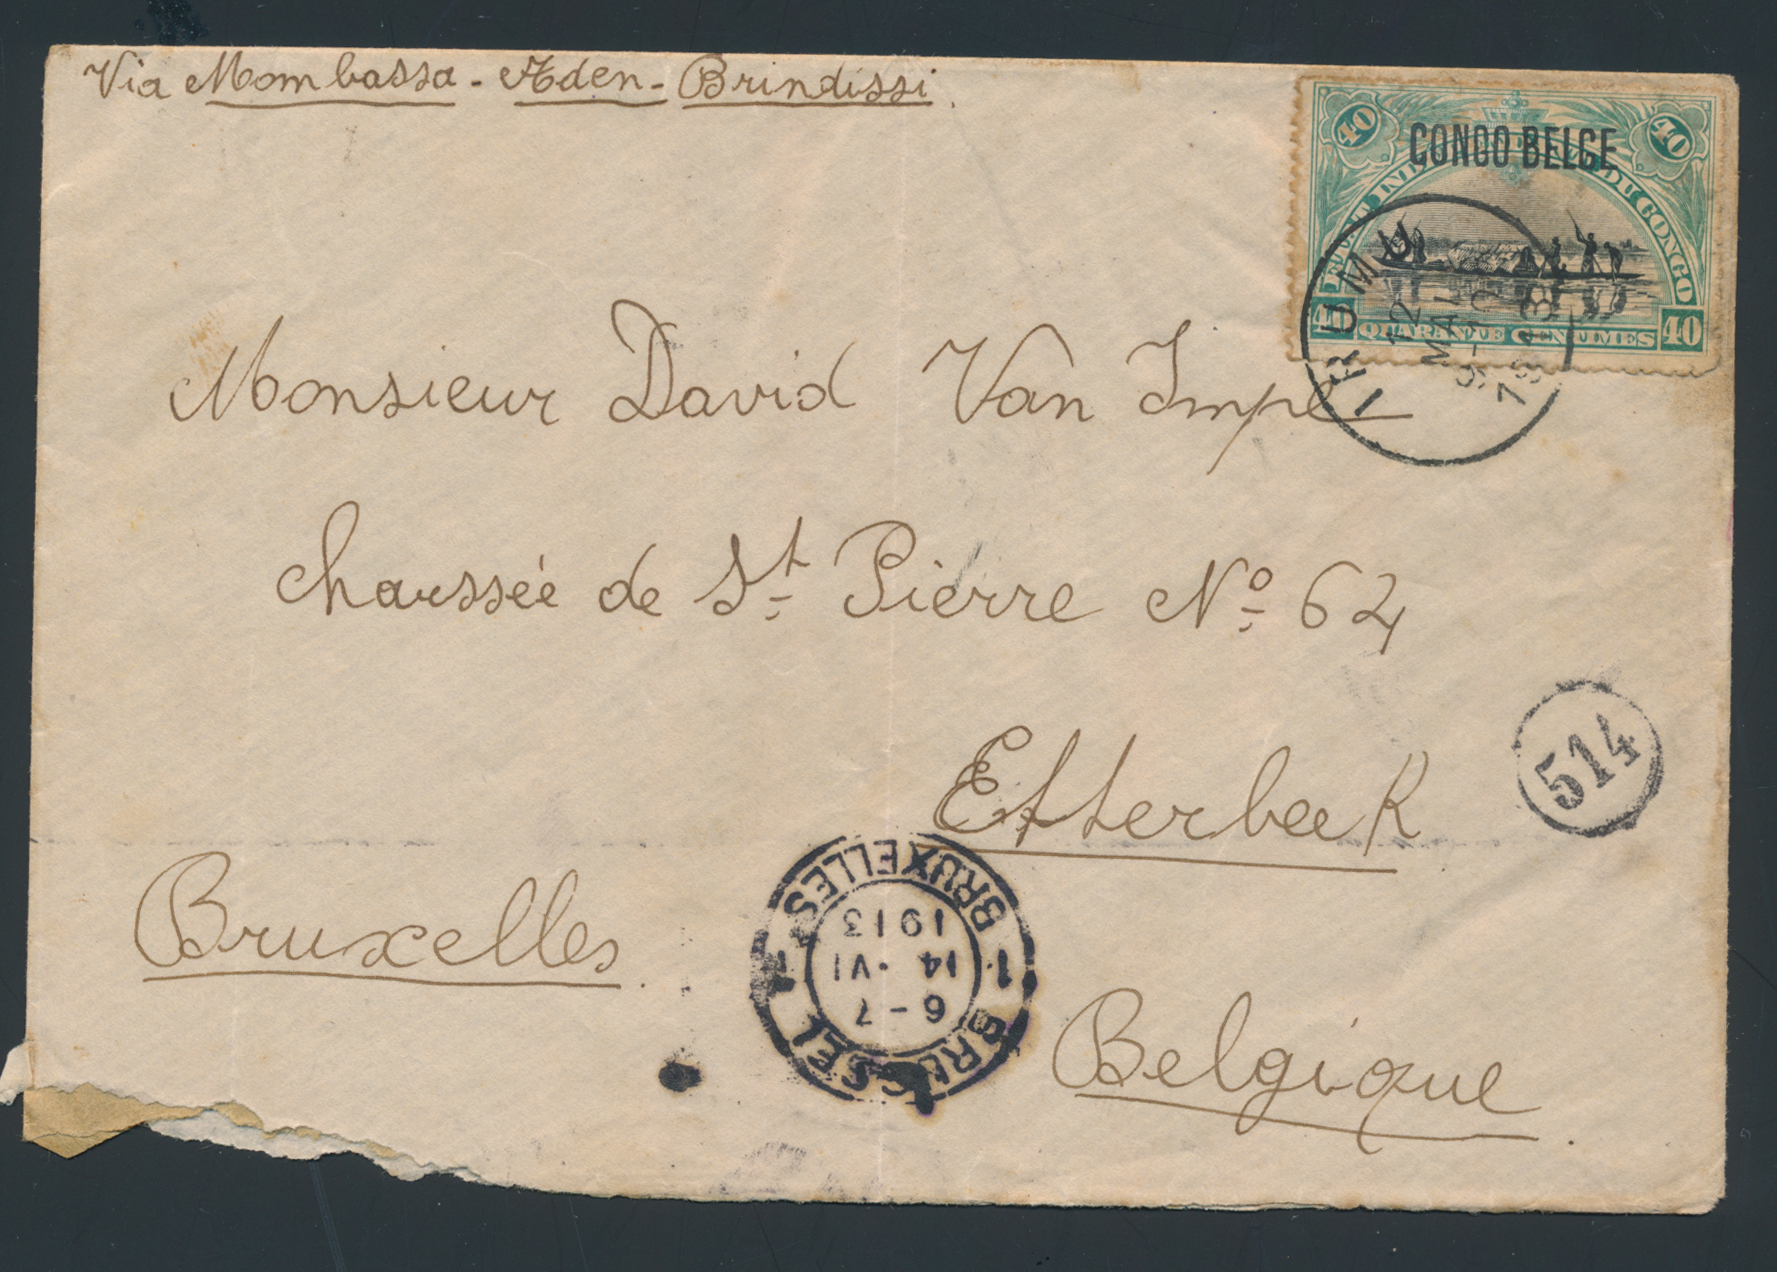 Via Mombassa - Aden - Brindissi.
40 CONGO BELGE 40
DU CONGO
40 QUARANTE CENTIMES 40
IRUMU
12
MAI
9-10
1913
Monsieur David Van Impe
chaussée de St Pierre No 62
514
Etterbeek
Bruxelles.
1 BRUXELLES 1
1913
14 · VI
6-7
BRUSSEL
Belgique.